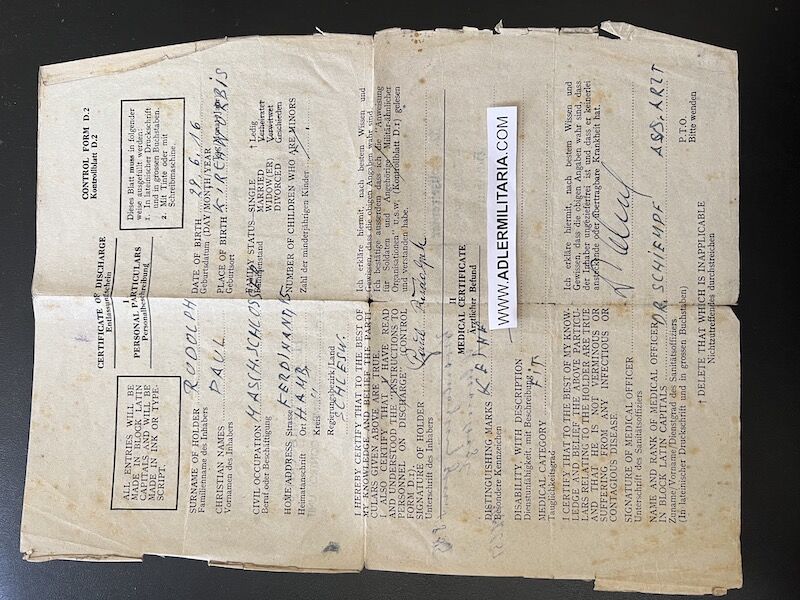 CONTROL FORM D.2
Kontrollblatt D.2
CERTIFICATE OF DISCHARGE
Entlassungschein
ALL ENTRIES WILL BE
MADE IN BLOCK LATIN
CAPITALS AND WILL BE
MADE IN INK OR TYPE-
SCRIPT.
I
PERSONAL PARTICULARS
Personalbeschreibung
Dieses Blatt muss in folgender
weise ausgefüllt werden:
1. In lateinischer Druckschrift
und in grossen Buchstaben.
2. Mit Tinte oder mit
Schreibmaschine.
SURNAME OF HOLDER RUDOLPH
Familienname des Inhabers
DATE OF BIRTH 29.6.16
Geburtsdatum (DAY/MONTH/YEAR
CHRISTIAN NAMES PAUL
Vornamen des Inhabers
PLACE OF BIRTH KIRCHWORBIS
Geburtsort
CIVIL OCCUPATION MASCH.SCHLOSSER
Beruf oder Beschäftigung
FAMILY STATUS: SINGLE † Ledig
Familienstand MARRIED Verheiratet
WIDOW(ER) Verwitwet
DIVORCED Geschieden
HOME ADDRESS Strasse FERDINAND 15
Heimatanschrift Ort HAMB.
Kreis "
Regierungsbezirk/Land
SCHLESW.
NUMBER OF CHILDREN WHO ARE MINORS
Zahl der minderjährigen Kinder
I HEREBY CERTIFY THAT TO THE BEST OF
MY KNOWLEDGE AND BELIEF THE PARTI-
CULARS GIVEN ABOVE ARE TRUE.
I ALSO CERTIFY THAT I HAVE READ
AND UNDERSTOOD THE INSTRUCTIONS TO
PERSONNEL ON DISCHARGE (CONTROL
FORM D.1).
Ich erkläre hiermit, nach bestem Wissen und
Gewissen, dass die obigen Angaben wahr sind.
Ich bestätige ausserdem dass ich die Anweisung
für Soldaten und Angehörige Militär-ähnlicher
Organisationen" u.s.w. (Kontrollblatt D.1) gelesen
und verstanden habe.
SIGNATURE OF HOLDER Paul Rudolph
Unterschrift des Inhabers
II
MEDICAL CERTIFICATE
Ärztlicher Befund
DISTINGUISHING MARKS KEINE
Besondere Kennzeichen
DISABILITY, WITH DESCRIPTION
Dienstunfähigkeit, mit Beschreibung
MEDICAL CATEGORY FIT
Tauglichkeitsgrad
WWW.ADLERMILITARIA.COM
I CERTIFY THAT TO THE BEST OF MY KNOW-
LEDGE AND BELIEF THE ABOVE PARTICU-
LARS RELATING TO THE HOLDER ARE TRUE
AND THAT HE IS NOT VERMINOUS OR
SUFFERING FROM ANY INFECTIOUS OR
CONTAGIOUS DISEASE.
Ich erkläre hiermit, nach bestem Wissen und
Gewissen, dass die obigen Angaben wahr sind, dass
der Inhaber ungezieferfrei ist und dass er keinerlei
ansteckende oder übertragbare Krankheit hat.
SIGNATURE OF MEDICAL OFFICER
Unterschrift des Sanitätsoffiziers
NAME AND RANK OF MEDICAL OFFICER DR. SCHIEMPF ASS.ARZT
IN BLOCK LATIN CAPITALS
Zuname/Vorname/Dienstgrad des Sanitätsoffiziers
(In lateinischer Druckschrift und in grossen Buchstaben)
† DELETE THAT WHICH IS INAPPLICABLE
Nichtzutreffendes durchstreichen
P.T.O.
Bitte wenden